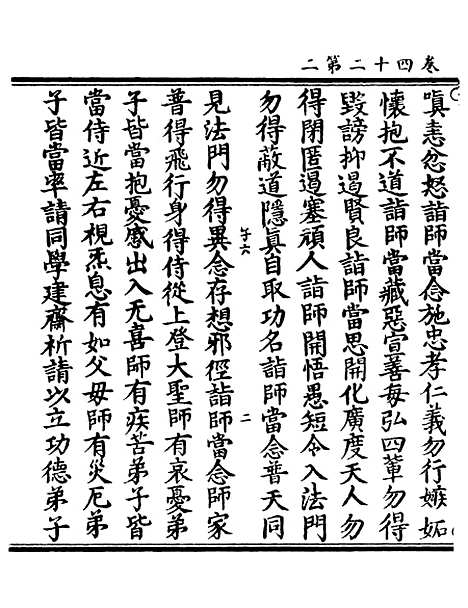 卷四十二第二
嗔恚忿怒詣師當念施忠孝仁義勿行嫉妬
懷抱不道詣師當藏惡宣善每弘四輩勿得
毀謗抑遏賢良詣師當思開化廣度天人勿
得閉匿遏塞頑人詣師開悟愚短令入法門
勿得蔽道隱真自取功名詣師當念普天同
午六
二
見法門勿得異念存想邪徑詣師當念師家
普得飛行身得侍從上登大聖師有哀憂弟
子皆當抱憂慼出入无喜師有疾苦弟子皆
當侍近左右視炁息有如父母師有災厄弟
子皆當率請同學建齋祈請以立功德弟子